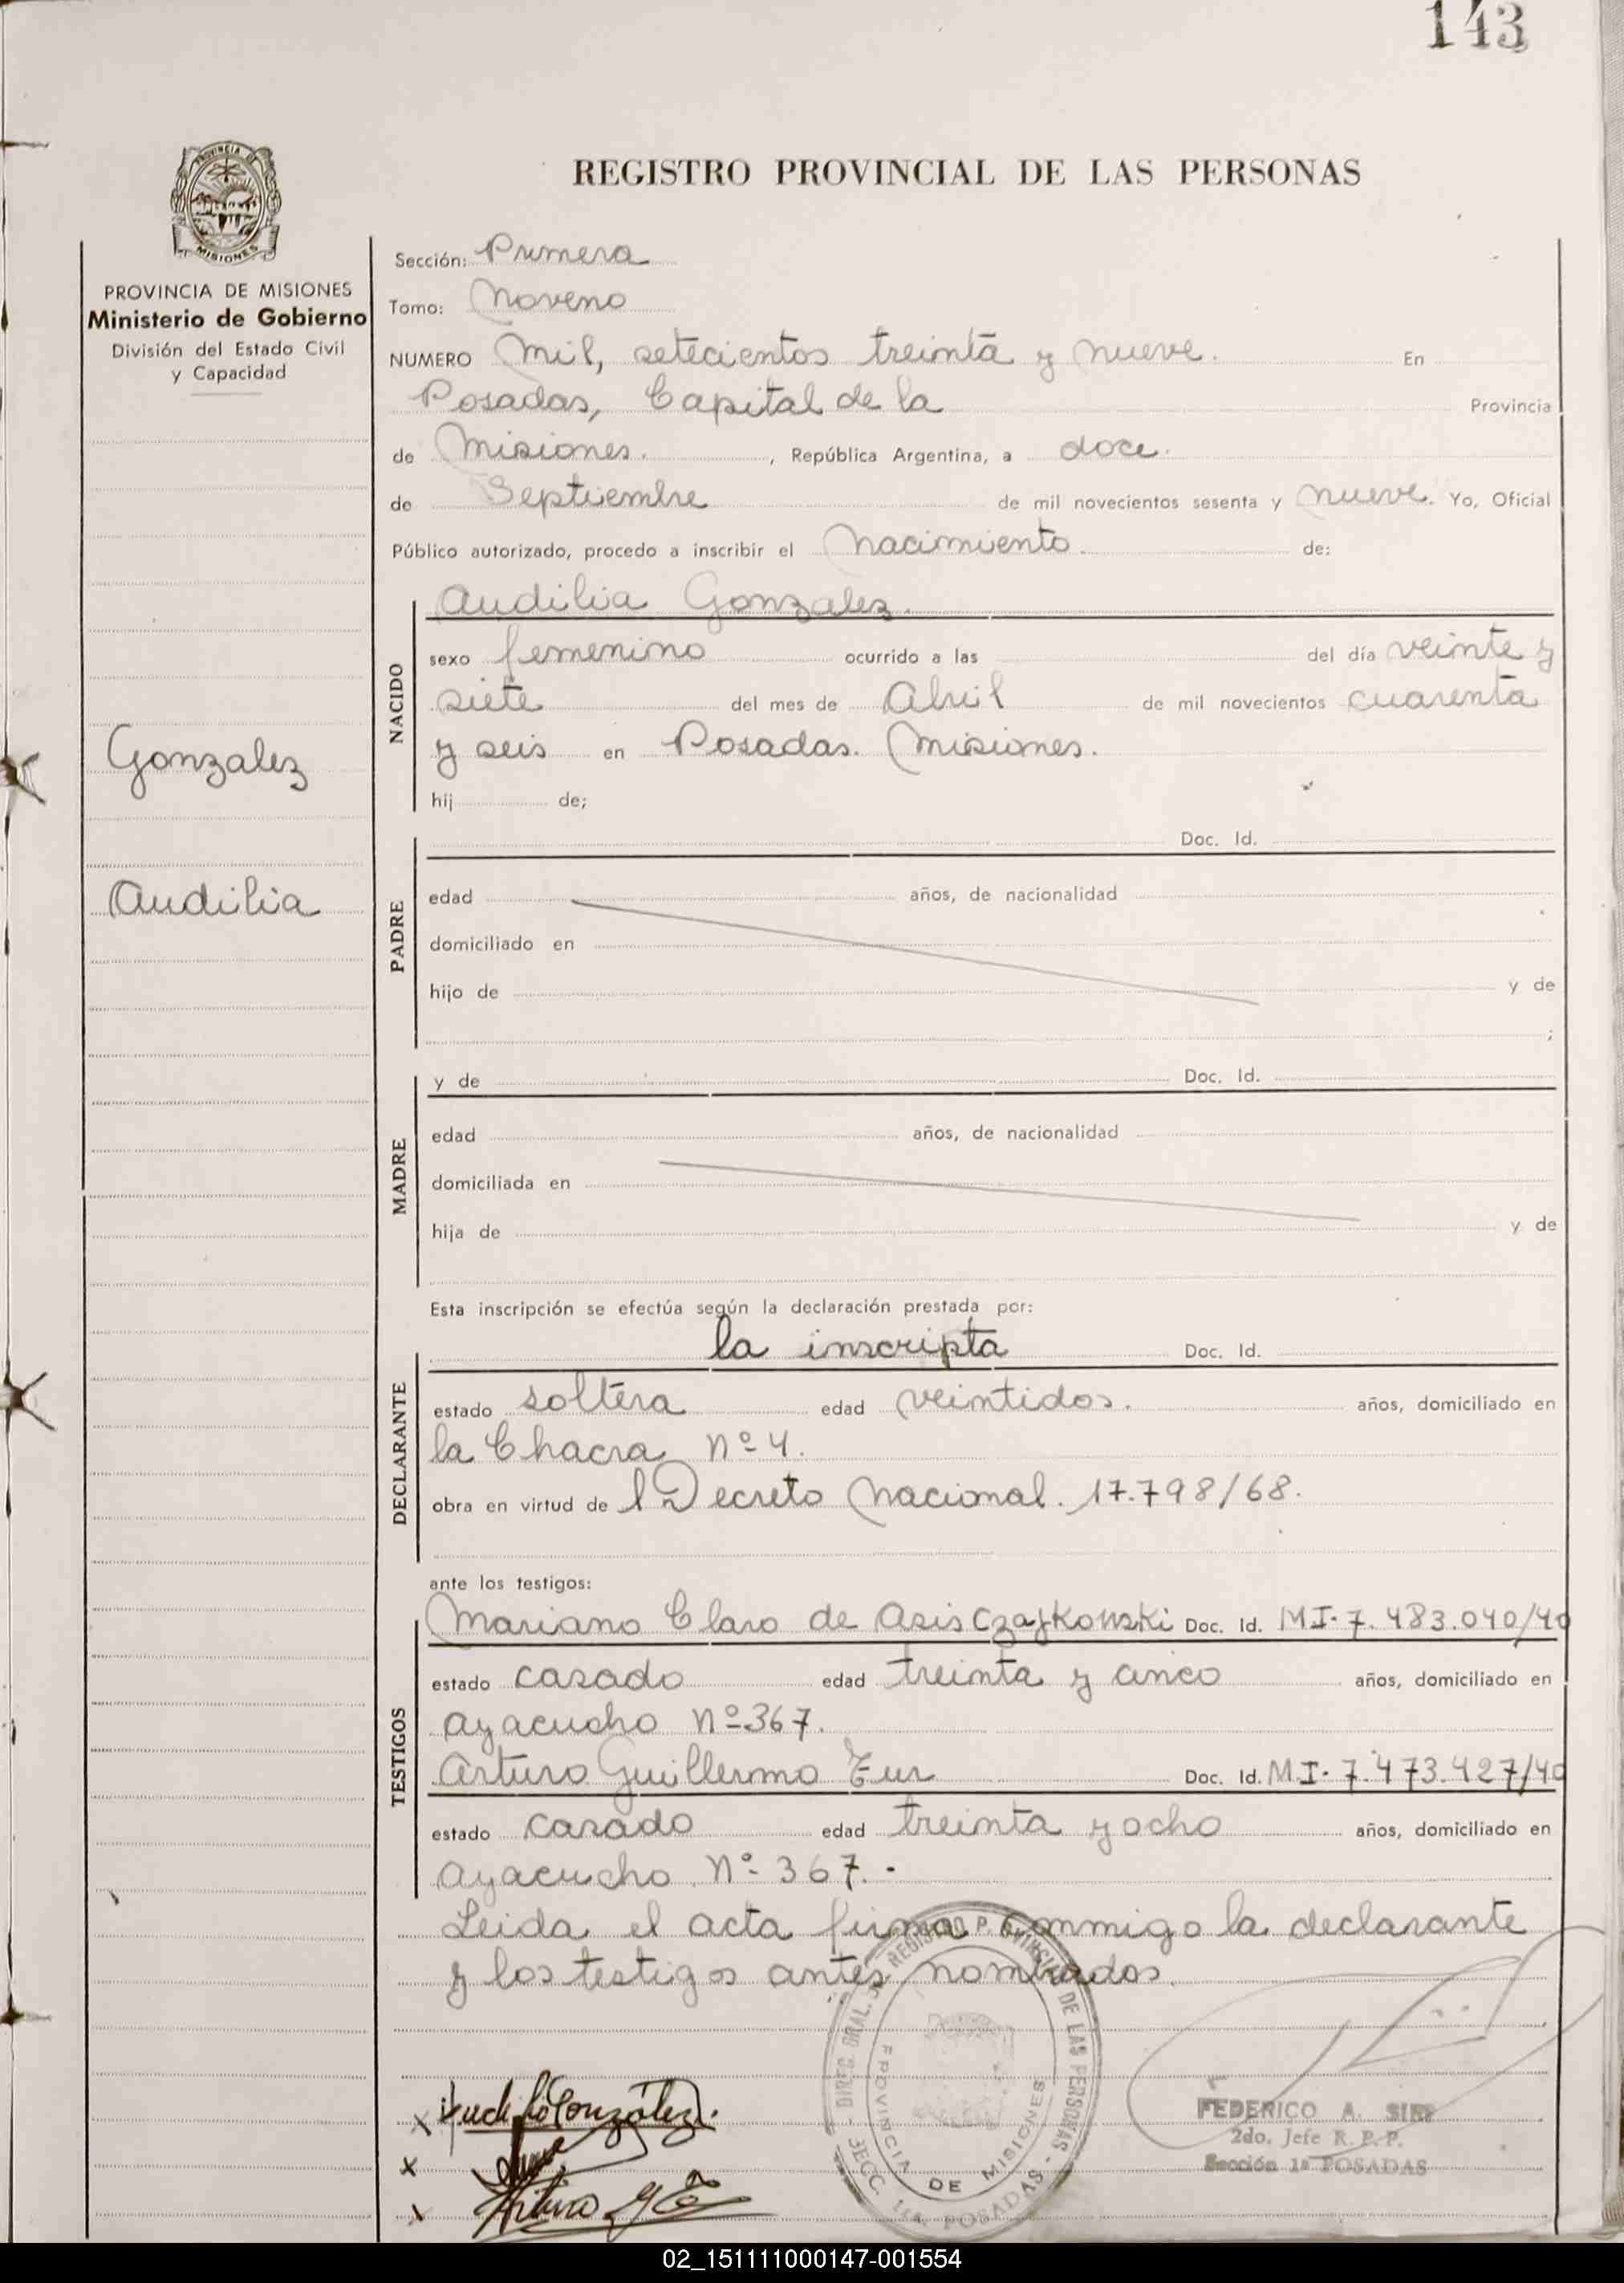 143
REGISTRO PROVINCIAL DE LAS PERSONAS
PROVINCIA DE
MISIONES
PROVINCIA DE MISIONES
Ministerio de Gobierno
División del Estado Civil
y Capacidad
Gonzalez
Audilia
Sección: Primera
Tomo: Noveno
NUMERO Mil, setecientos treinta y nueve. En
Posadas, Capital de la Provincia
de Misiones. , República Argentina, a doce.
de Septiembre de mil novecientos sesenta y nueve. Yo, Oficial
Público autorizado, procedo a inscribir el Nacimiento. de:
NACIDO
Audilia Gonzalez.
sexo femenino ocurrido a las del día veinte y
siete del mes de Abril de mil novecientos cuarenta
y seis en Posadas. Misiones.
hij de;
PADRE
Doc. Id.
edad años, de nacionalidad
domiciliado en
hijo de y de
;
MADRE
y de Doc. Id.
edad años, de nacionalidad
domiciliada en
hija de y de
Esta inscripción se efectúa según la declaración prestada por:
DECLARANTE
la inscripta Doc. Id.
estado soltera edad veintidos. años, domiciliado en
la Chacra Nº 4.
obra en virtud de l Decreto Nacional. 17.798/68.
ante los testigos:
TESTIGOS
Mariano Claro de Asis Czajkowski Doc. Id. MI-7.483.040/40
estado casado edad treinta y cinco años, domiciliado en
Ayacucho Nº 367.
Arturo Guillermo Doc. Id. M.I-7.473.427/40
estado casado edad treinta y ocho años, domiciliado en
Ayacucho Nº 367.-
Leida el acta firma conmigo la declarante
y los testigos antes nombrados.
DIREC. GRAL. DEL REGISTRO PROVINCIAL DE LAS PERSONAS - SECC. 1ra. POSADAS -
PROVINCIA DE MISIONES
x González.
x
x Arturo
FEDERICO A.
2do. Jefe R. P. P.
Sección 1ª POSADAS
02_151111000147-001554